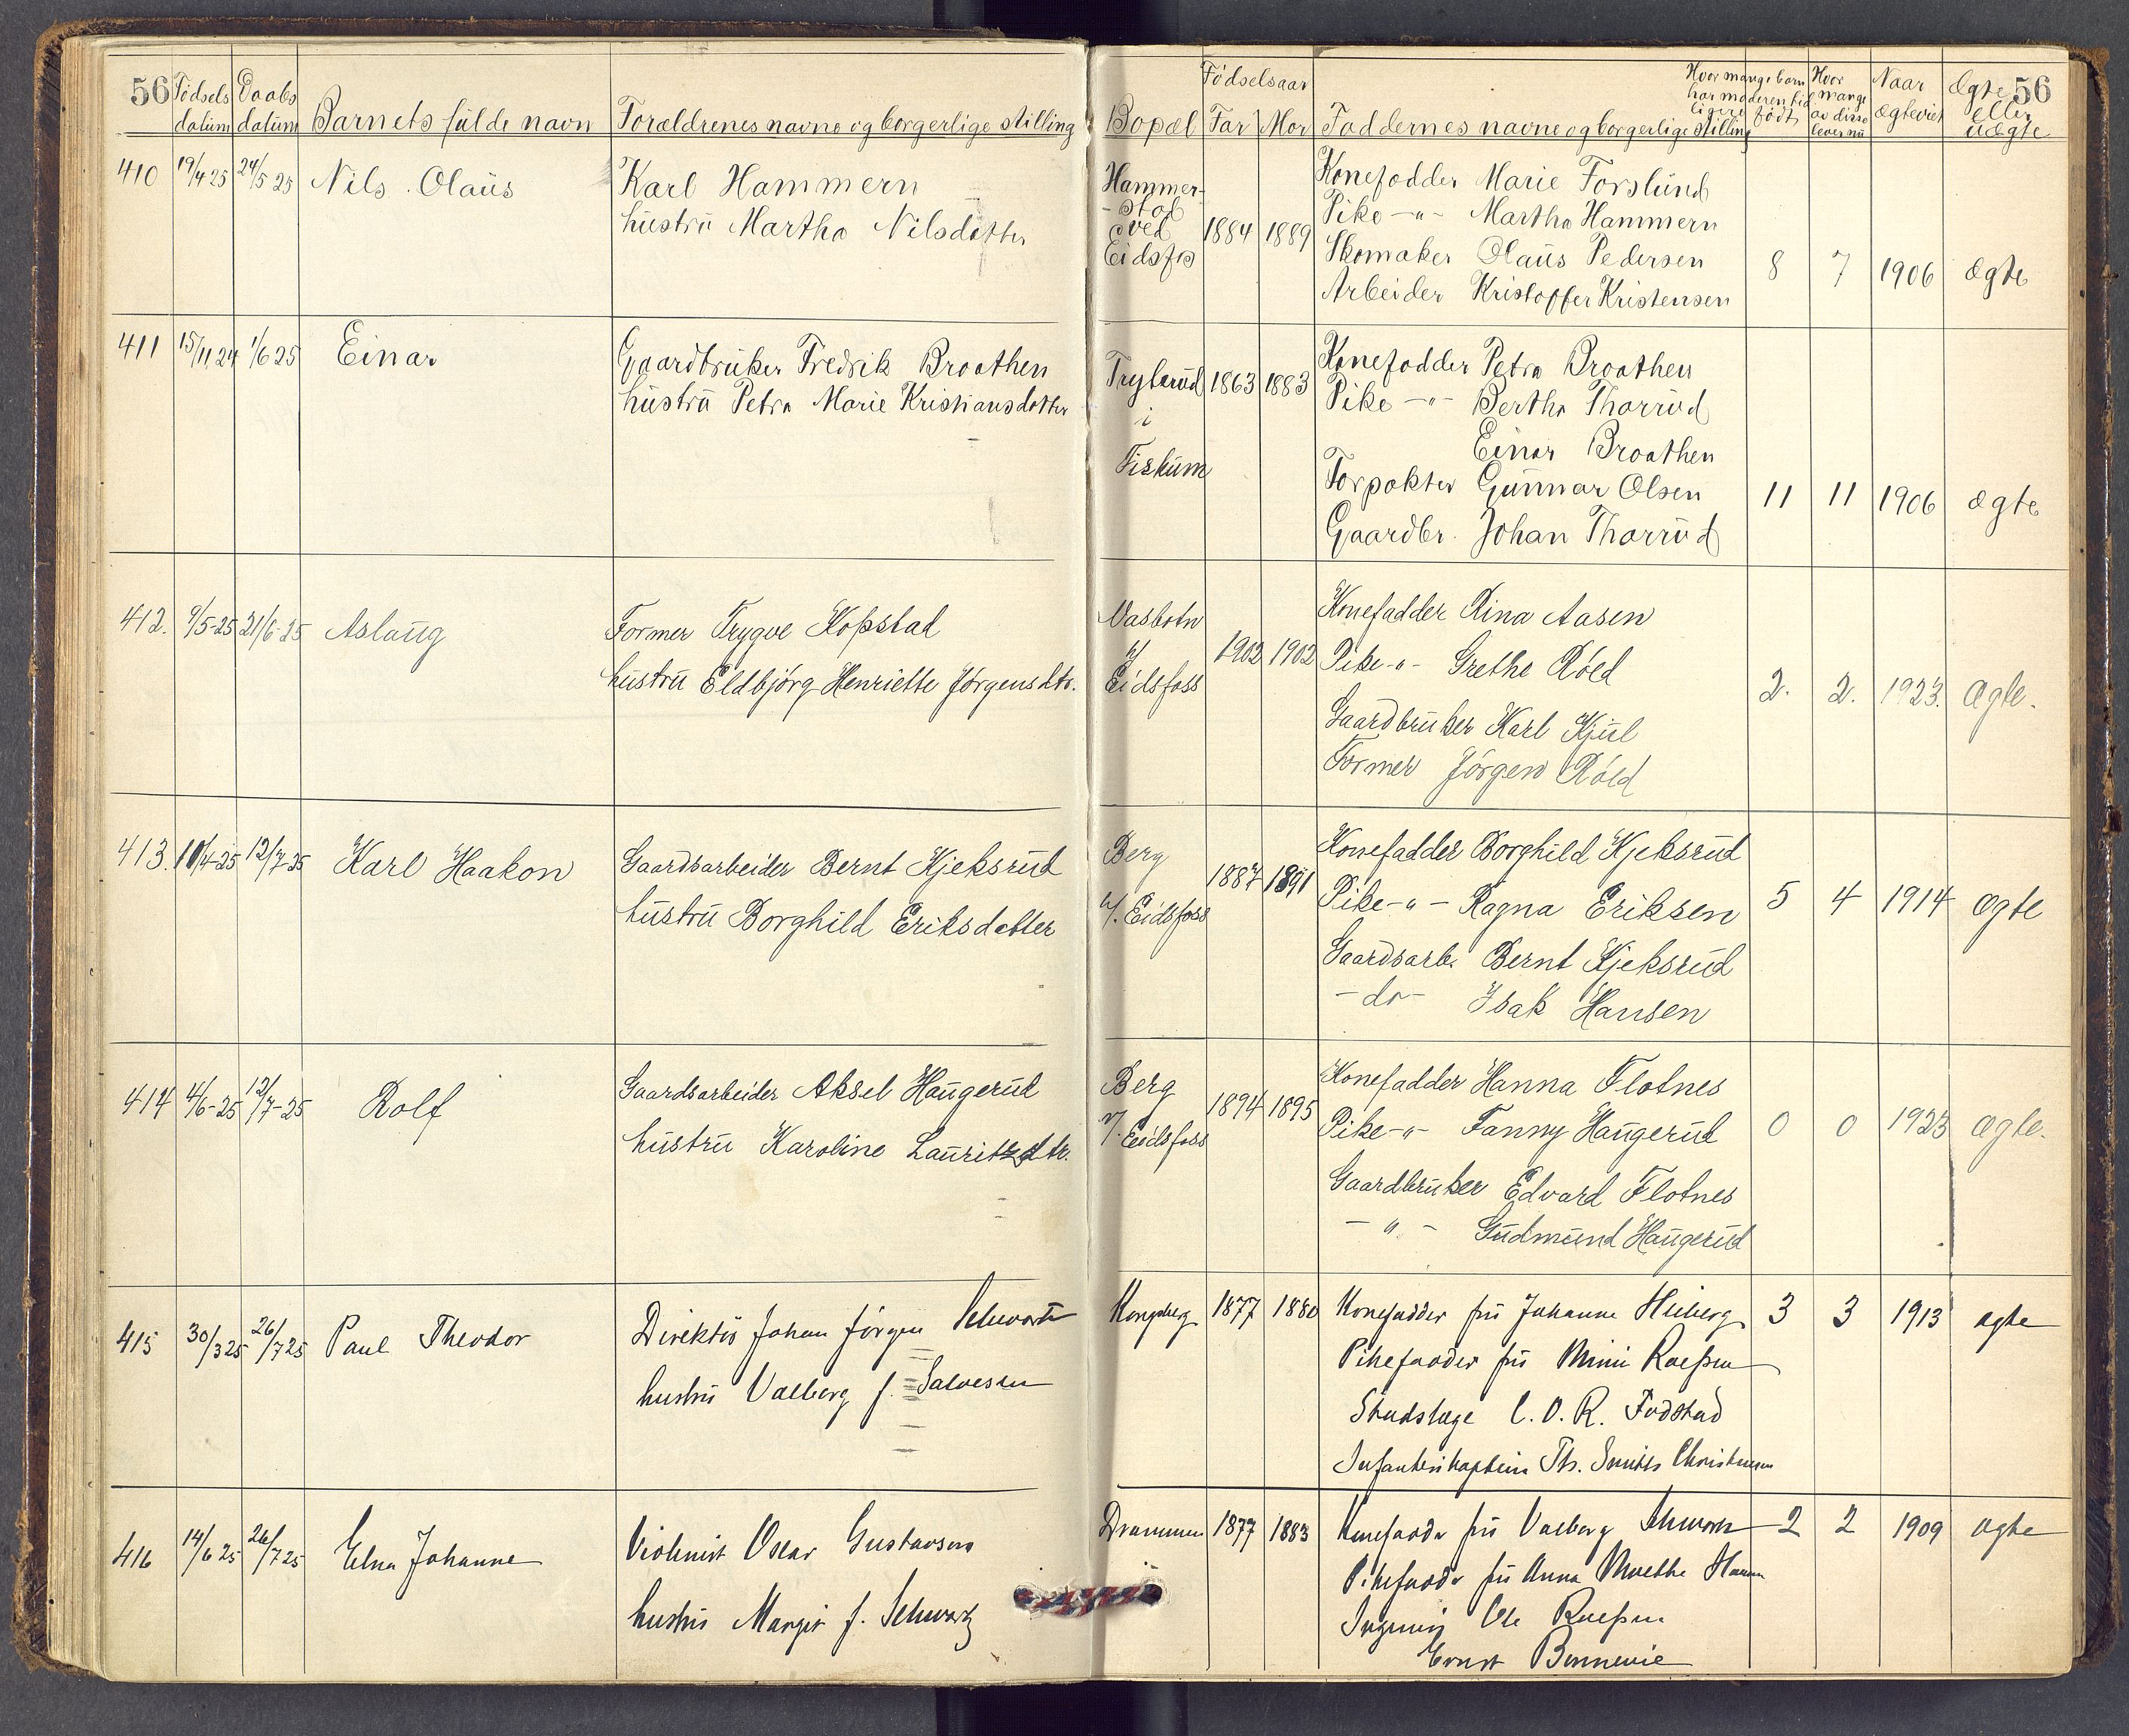 56 Fødsels datum Daabs datum Barnets fulde navn Forældrenes navne og borgerlige stilling Bopæl Fødselsaar Far Mor Faddernes navne og borgerlige stilling Hvor mange barn har moderen tidligere født Hvor mange av disse lever nu Naar ægteviet Ægte eller uægte 56
410 19/4 25 24/5 25 Nils Olaus
Karl Hammern
hustru Martha Nilsdatter
Hammer-
-stad
ved
Eidsfos
1884 1889
Konefadder Marie Forslund
Pike -"- Martha Hammern
Skomaker Olaus Pedersen
Arbeider Kristoffer Kristensen
8 7 1906 ægte
411 15/11 24 1/6 25 Einar
Gaardbruker Fredrik Braathen
hustru Petra Marie Kristiansdatter
Trylerud
i
Fiskum
1863 1883
Konefadder Petra Braathen
Pike -"- Bertha Thorrud
Einar Braathen
Forpakter Gunnar Olsen
Gaardbr. Johan Thorrud
11 11 1906 ægte
412. 9/5-25 21/6-25 Aslaug
Former Trygve Kopstad
hustru Eldbjørg Henriette Jørgensdtr.
Vasbotn
v/
Eidsfoss
1902 1902
Konefadder Rina Aasen
Pike -"- Grethe Røed
Gaardbruker Karl Kjul
Former Jørgen Røed
2. 2. 1923. Ægte.
413. 10/4-25 12/7-25 Karl Haakon
Gaardsarbeider Bernt Kjeksrud
hustru Borghild Eriksdatter
Berg
v/. Eidsfoss
1887 1891
Konefadder Borghild Kjeksrud
Pike -"- Ragna Eriksen
Gaardsarb. Bernt Kjeksrud
-do- Isak Hansen
5 4 1914 ægte
414 4/6-25 12/7-25 Rolf
Gaardsarbeider Aksel Haugerud
hustru Karoline Lauritzdtr.
Berg
v/. Eidsfoss
1894 1895
Konefadder Hanna Flotnes
Pike -"- Fanny Haugerud
Gaardbruker Edvard Flotnes
-"- Gudmund Haugerud
0 0 1923 ægte.
415 30/3 25 26/7 25 Paul Theodor
Direktør Johan Jørgen Schwartz
hustru Valborg f. Salvesen
Kongsberg 1877 1880
Konefadder fru Johanne Heiberg
Pikefadder fru Mimi Roepen
Stadslæge C. O. R. Fodstad
Infanterikaptein Th. Smith Christensen
3 3 1913 ægte
416 14/6 25 26/7 25 Elna Johanne
Violinist Oscar Gustavson
hustru Margit f. Schwartz
Drammen 1877 1883
Konefadder fru Valborg Schwartz
Pikefadder fru Anna Moethe
Ingeniør Ole Roepen
Ernst Bonnevie
2 2 1909 ægte